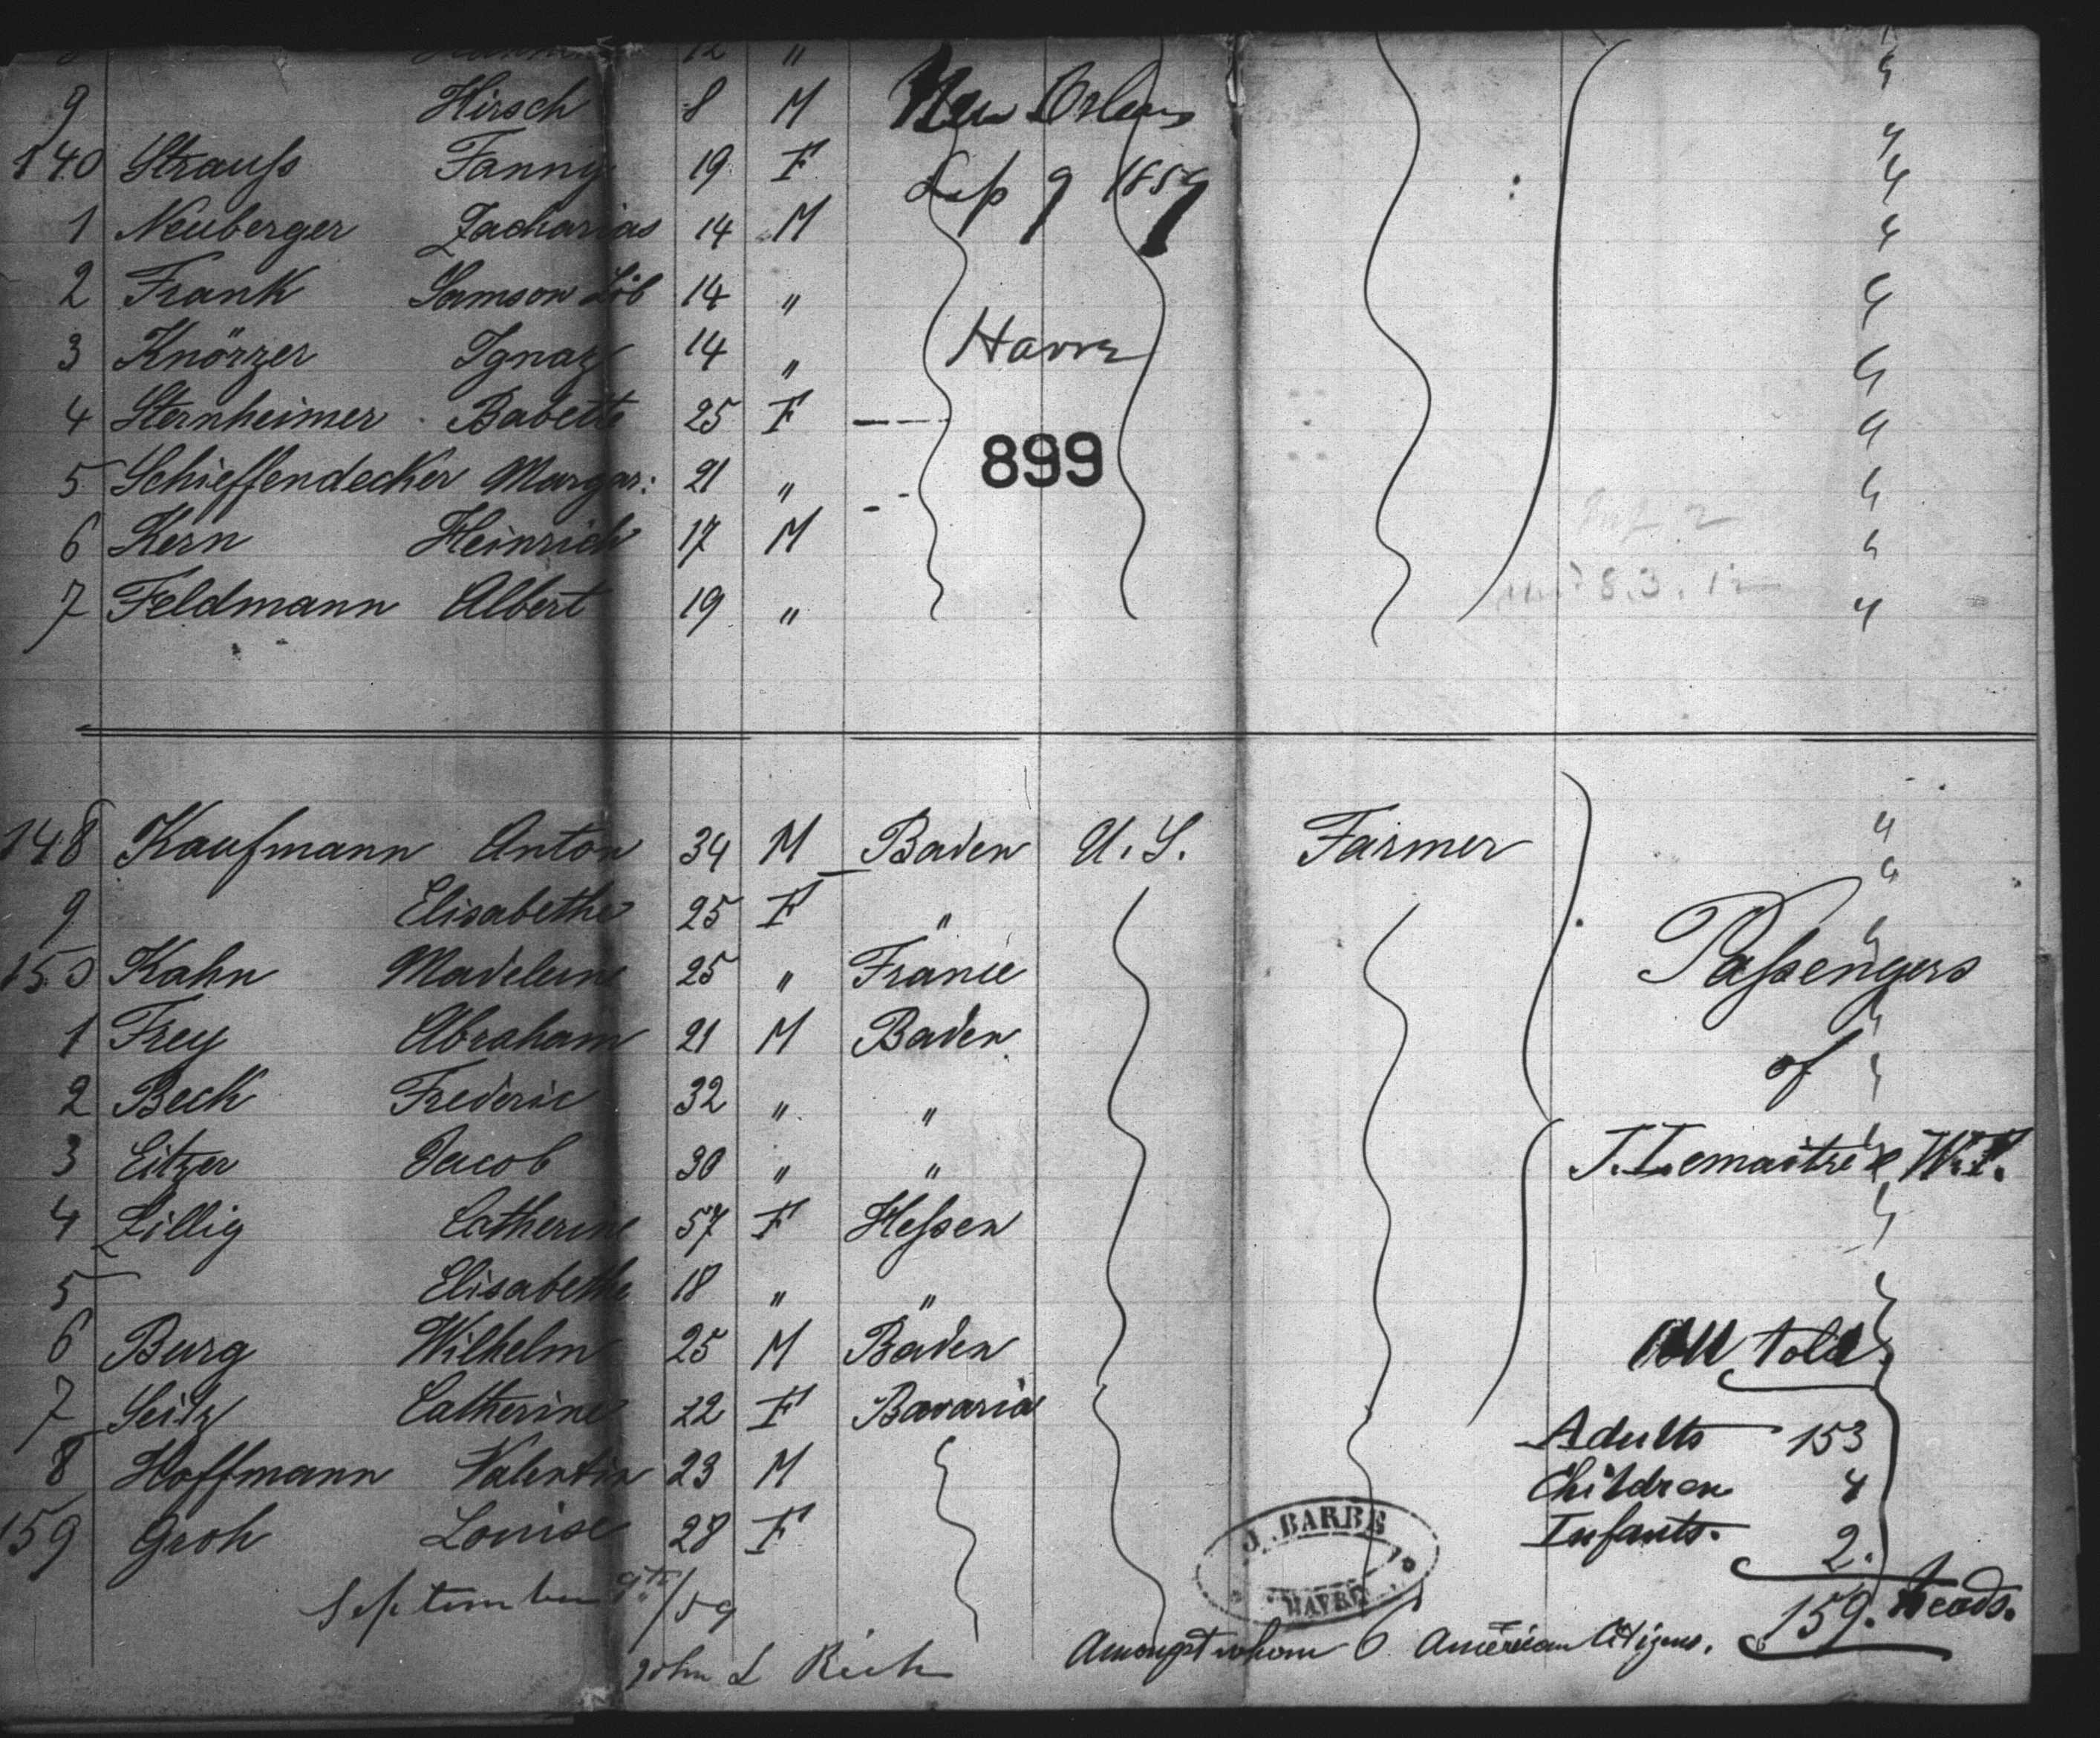 12 "
9 Hirsch 8 M New Orleans
140 Strauſs Fanny 19 F Sep 9 1859
1 Neuberger Zacharias 14 M
2 Frank Samson Löb 14 "
3 Knörzer Ignaz 14 " Havre
4 Sternheimer Babette 25 F
899
5 Schieffendecker Margar: 21 "
6 Kern Heinrich 17 M
7 Feldmann Albert 19 "
148 Kaufmann Anton 34 M Baden U.S. Farmer
9 Elisabethe 25 F "
150 Kahn Madeleine 25 " France Paſsengers
1 Frey Abraham 21 M Baden
of
2 Beck Frederic 32 " "
3 Eitzer Jacob 30 " " J. Lemaitre
4 Zillig Catherine 57 F Heſsen
5 Elisabethe 18 " "
6 Burg Wilhelm 25 M Baden All told
7 Seitz Catherine 22 F Bavaria Adults 153
8 Hoffmann Valentin 23 M Children 4
159 Groh Louise 28 F Infants. 2.
J. BARBE
HAVRE
September 9th/59 159. Heads.
John L Rich Amongst whom 6 American Citizens.